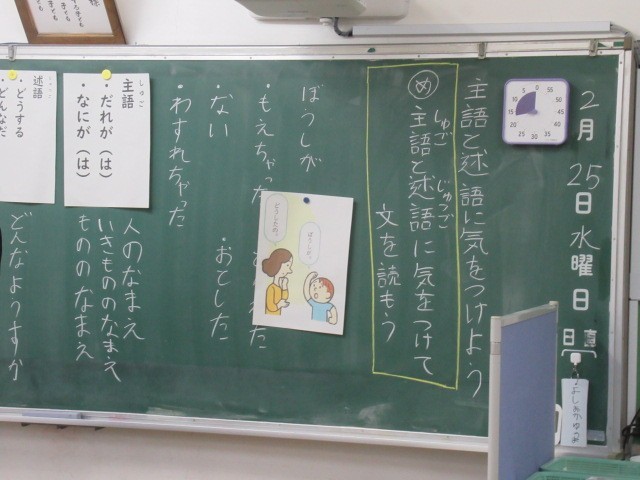 2月25日水曜日
日直
主語と述語に気をつけよう
め
しゅご じゅつご
主語と述語に気をつけて
文を読もう
ぼうしが
・もえちゃった
・ない
・おとした
・わすれちゃった
どうしたの。
ぼうしが。
しゅご
主語
・だれが（は）
・なにが（は）
人のなまえ
いきもののなまえ
もののなまえ
述語
・どうする
・どんなだ
どんなようすか
55 50 45 40 35 30 25 20 15 10 5 0